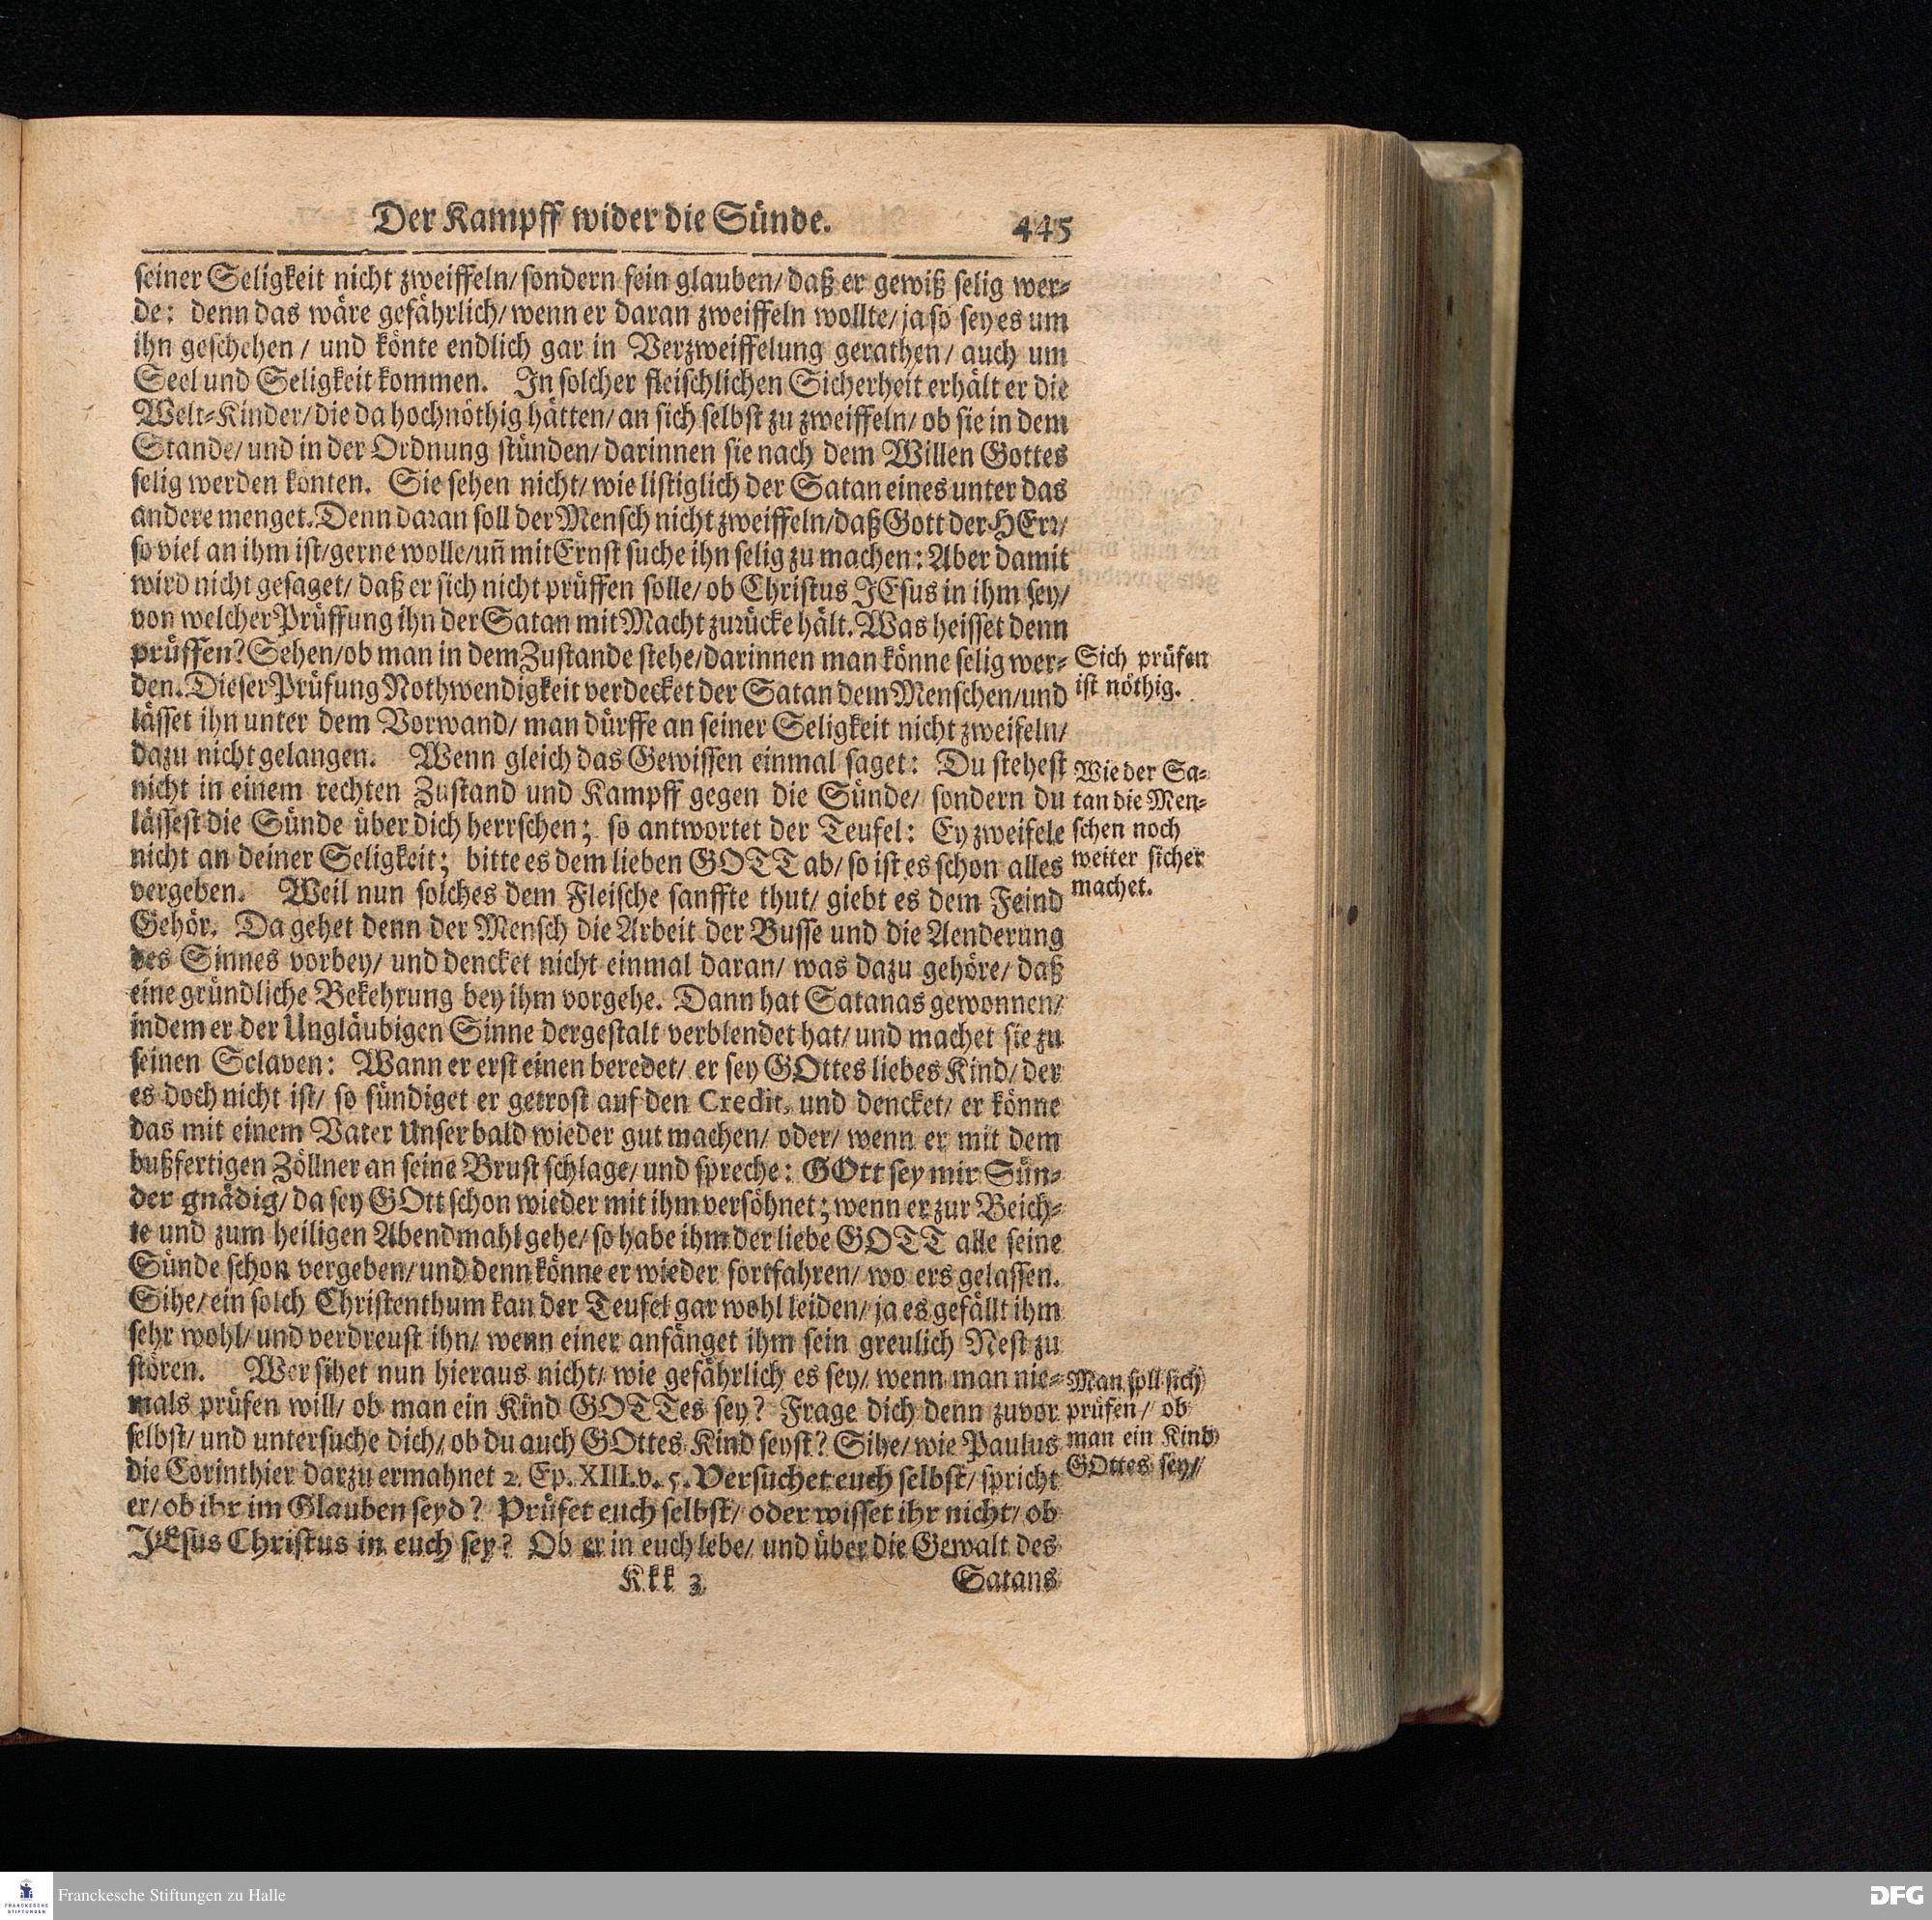 Der Kampff wider die Sünde. 445
seiner Seligkeit nicht zweiffeln/ sondern fein glauben/ daß er gewiß selig wer-
de: denn das wäre gefährlich/ wenn er daran zweiffeln wollte/ ja so sey es um
ihn geschehen/ und könte endlich gar in Verzweiffelung gerathen/ auch um
Seel und Seligkeit kommen. In solcher fleischlichen Sicherheit erhält er die
Welt-Kinder/ die da hochnöthig hätten/ an sich selbst zu zweiffeln/ ob sie in dem
Stande/ und in der Ordnung stünden/ darinnen sie nach dem Willen Gottes
selig werden könten. Sie sehen nicht/ wie listiglich der Satan eines unter das
andere menget. Denn daran soll der Mensch nicht zweiffeln/ daß Gott der HErr/
so viel an ihm ist/ gerne wolle/ uñ mit Ernst suche ihn selig zu machen: Aber damit
wird nicht gesaget/ daß er sich nicht prüffen solle/ ob Christus JEsus in ihm sey/
von welcher Prüffung ihn der Satan mit Macht zurücke hält. Was heisset denn
prüffen? Sehen/ ob man in dem Zustande stehe/ darinnen man könne selig wer-
den. Dieser Prüfung Nothwendigkeit verdecket der Satan dem Menschen/ und
lässet ihn unter dem Vorwand/ man dürffe an seiner Seligkeit nicht zweifeln/
dazu nicht gelangen. Wenn gleich das Gewissen einmal saget: Du stehest
nicht in einem rechten Zustand und Kampff gegen die Sünde/ sondern du
lässest die Sünde über dich herrschen; so antwortet der Teufel: Ey zweifele
nicht an deiner Seligkeit; bitte es dem lieben GOTT ab/ so ist es schon alles
vergeben. Weil nun solches dem Fleische sanffte thut/ giebt es dem Feind
Gehör. Da gehet denn der Mensch die Arbeit der Busse und die Aenderung
des Sinnes vorbey/ und dencket nicht einmal daran/ was dazu gehöre/ daß
eine gründliche Bekehrung bey ihm vorgehe. Dann hat Satanas gewonnen/
indem er der Ungläubigen Sinne dergestalt verblendet hat/ und machet sie zu
seinen Sclaven: Wann er erst einen beredet/ er sey GOttes liebes Kind/ der
es doch nicht ist/ so sündiget er getrost auf den Credit, und dencket/ er könne
das mit einem Vater Unser bald wieder gut machen/ oder/ wenn er mit dem
bußfertigen Zöllner an seine Brust schlage/ und spreche: GOtt sey mir Sün-
der gnädig/ da sey GOtt schon wieder mit ihm versöhnet; wenn er zur Beich-
te und zum heiligen Abendmahl gehe/ so habe ihm der liebe GOTT alle seine
Sünde schon vergeben/ und denn könne er wieder fortfahren/ wo ers gelassen.
Sihe/ ein solch Christenthum kan der Teufel gar wohl leiden/ ja es gefällt ihm
sehr wohl/ und verdreust ihn/ wenn einer anfänget ihm sein greulich Nest zu
stören. Wer sihet nun hieraus nicht/ wie gefährlich es sey/ wenn man nie-
mals prüfen will/ ob man ein Kind GOTTes sey? Frage dich denn zuvor
selbst/ und untersuche dich/ ob du auch GOttes Kind seyst? Sihe/ wie Paulus
die Corinthier darzu ermahnet 2. Ep. XIII. v. 5. Versuchet euch selbst/ spricht
er/ ob ihr im Glauben seyd? Prüfet euch selbst/ oder wisset ihr nicht/ ob
JEsus Christus in euch sey? Ob er in euch lebe/ und über die Gewalt des
Kkk 3 Satans
Sich prüfen
ist nöthig.
Wie der Sa-
tan die Men-
schen noch
weiter sicher
machet.
Man soll sich
prüfen/ ob
man ein Kind
GOttes sey/
Franckesche Stiftungen zu Halle
FRANCKESCHE
STIFTUNGEN
DFG